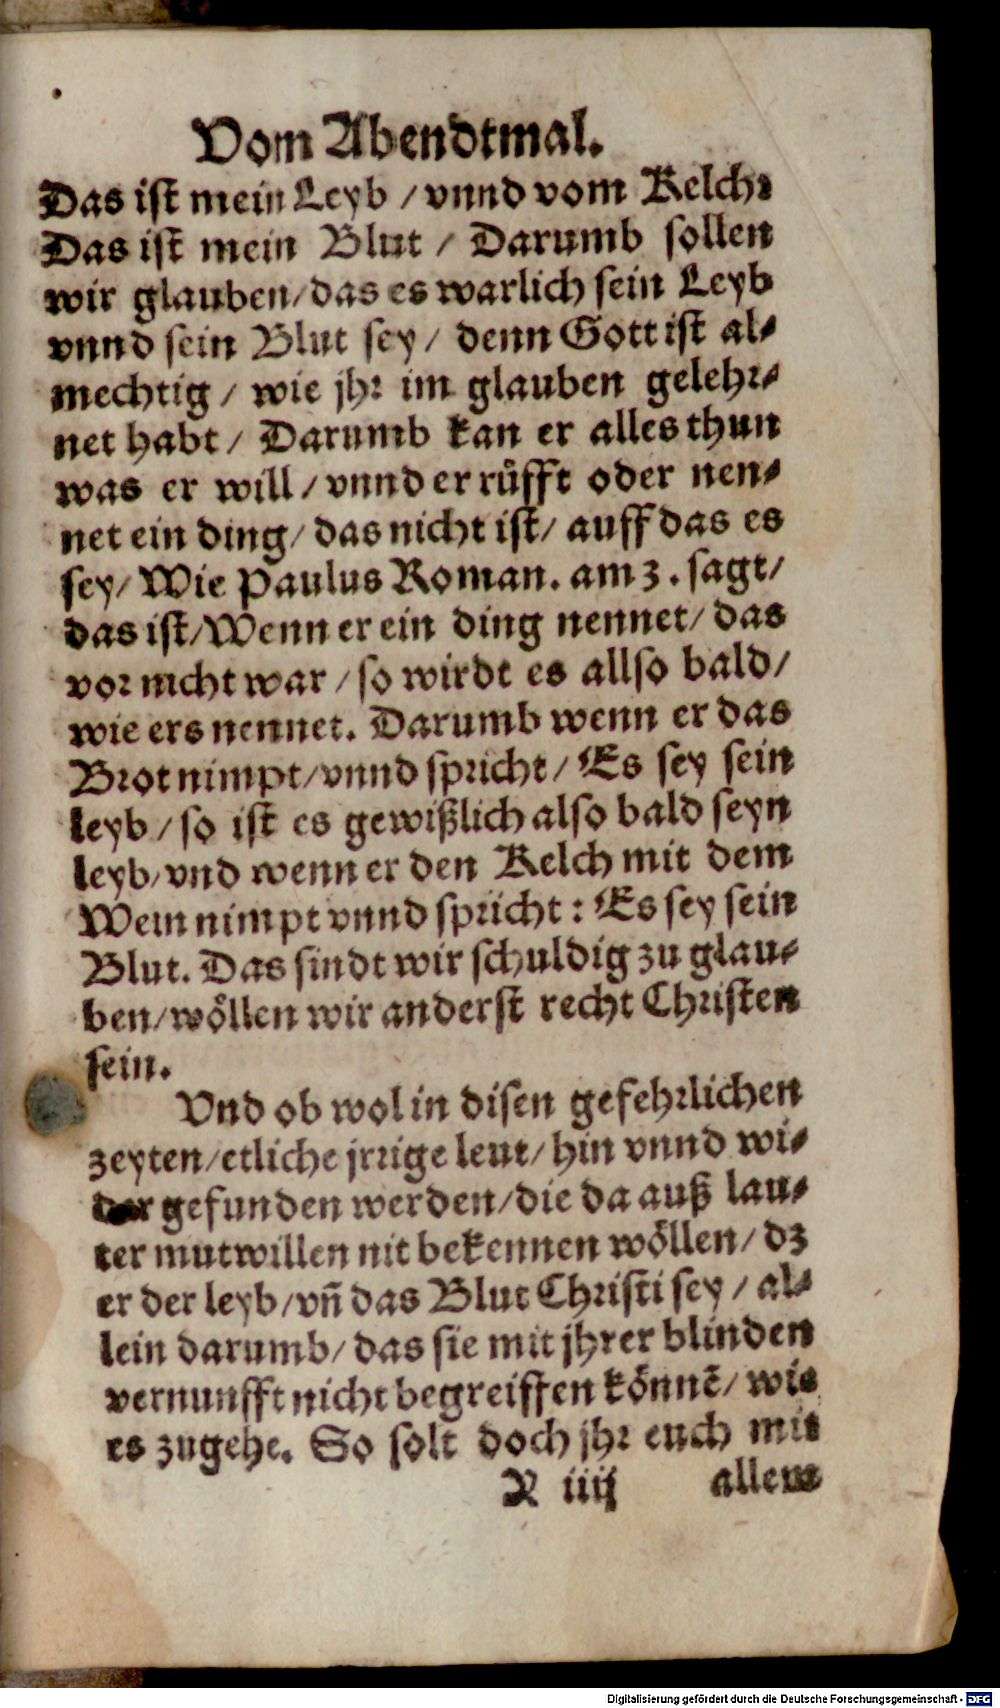 Vom Abendtmal.
Das ist mein Leyb / vnnd vom Kelch:
Das ist mein Blut / Darumb sollen
wir glauben / das es warlich sein Leyb
vnnd sein Blut sey / denn Gott ist al-
mechtig / wie jhr im glauben gelehr-
net habt / Darumb kan er alles thun
was er will / vnnd er rüfft oder nen-
net ein ding / das nicht ist / auff das es
sey / Wie Paulus Roman. am 3. sagt /
das ist / Wenn er ein ding nennet / das
vor nicht war / so wirdt es allso bald /
wie ers nennet. Darumb wenn er das
Brot nimpt / vnnd spricht / Es sey sein
leyb / so ist es gewißlich also bald seyn
leyb / vnd wenn er den Kelch mit dem
Wein nimpt vnnd spricht : Es sey sein
Blut. Das sindt wir schuldig zu glau-
ben / wöllen wir anderst recht Christen
sein.
Vnd ob wol in disen gefehrlichen
zeyten / etliche jrrige leut / hin vnnd wi-
der gefunden werden / die da auß lau-
ter mutwillen nit bekennen wöllen / dz
er der leyb / vñ das Blut Christi sey / al-
lein darumb / das sie mit jhrer blinden
vernunfft nicht begreiffen könnē / wie
es zugehe. So solt doch jhr euch mit
iiij allem
Digitalisierung gefördert durch die Deutsche Forschungsgemeinschaft - DFG